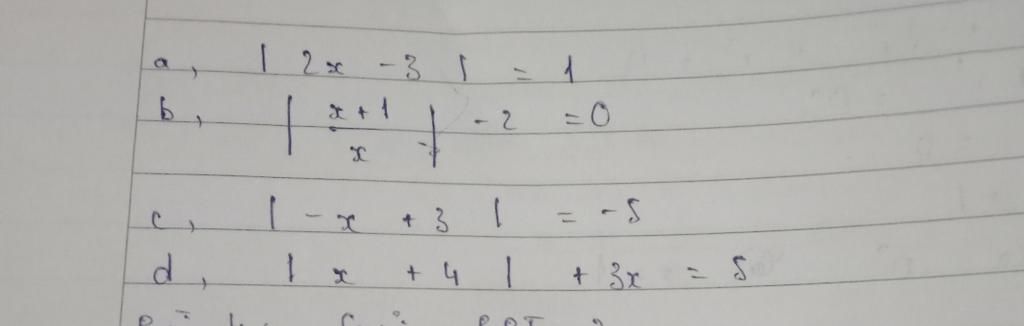 a, | 2x - 3 | = 1
b, | \frac{x + 1}{x} | - 2 = 0
c, | - x + 3 | = - 5
d, | x + 4 | + 3x = 5